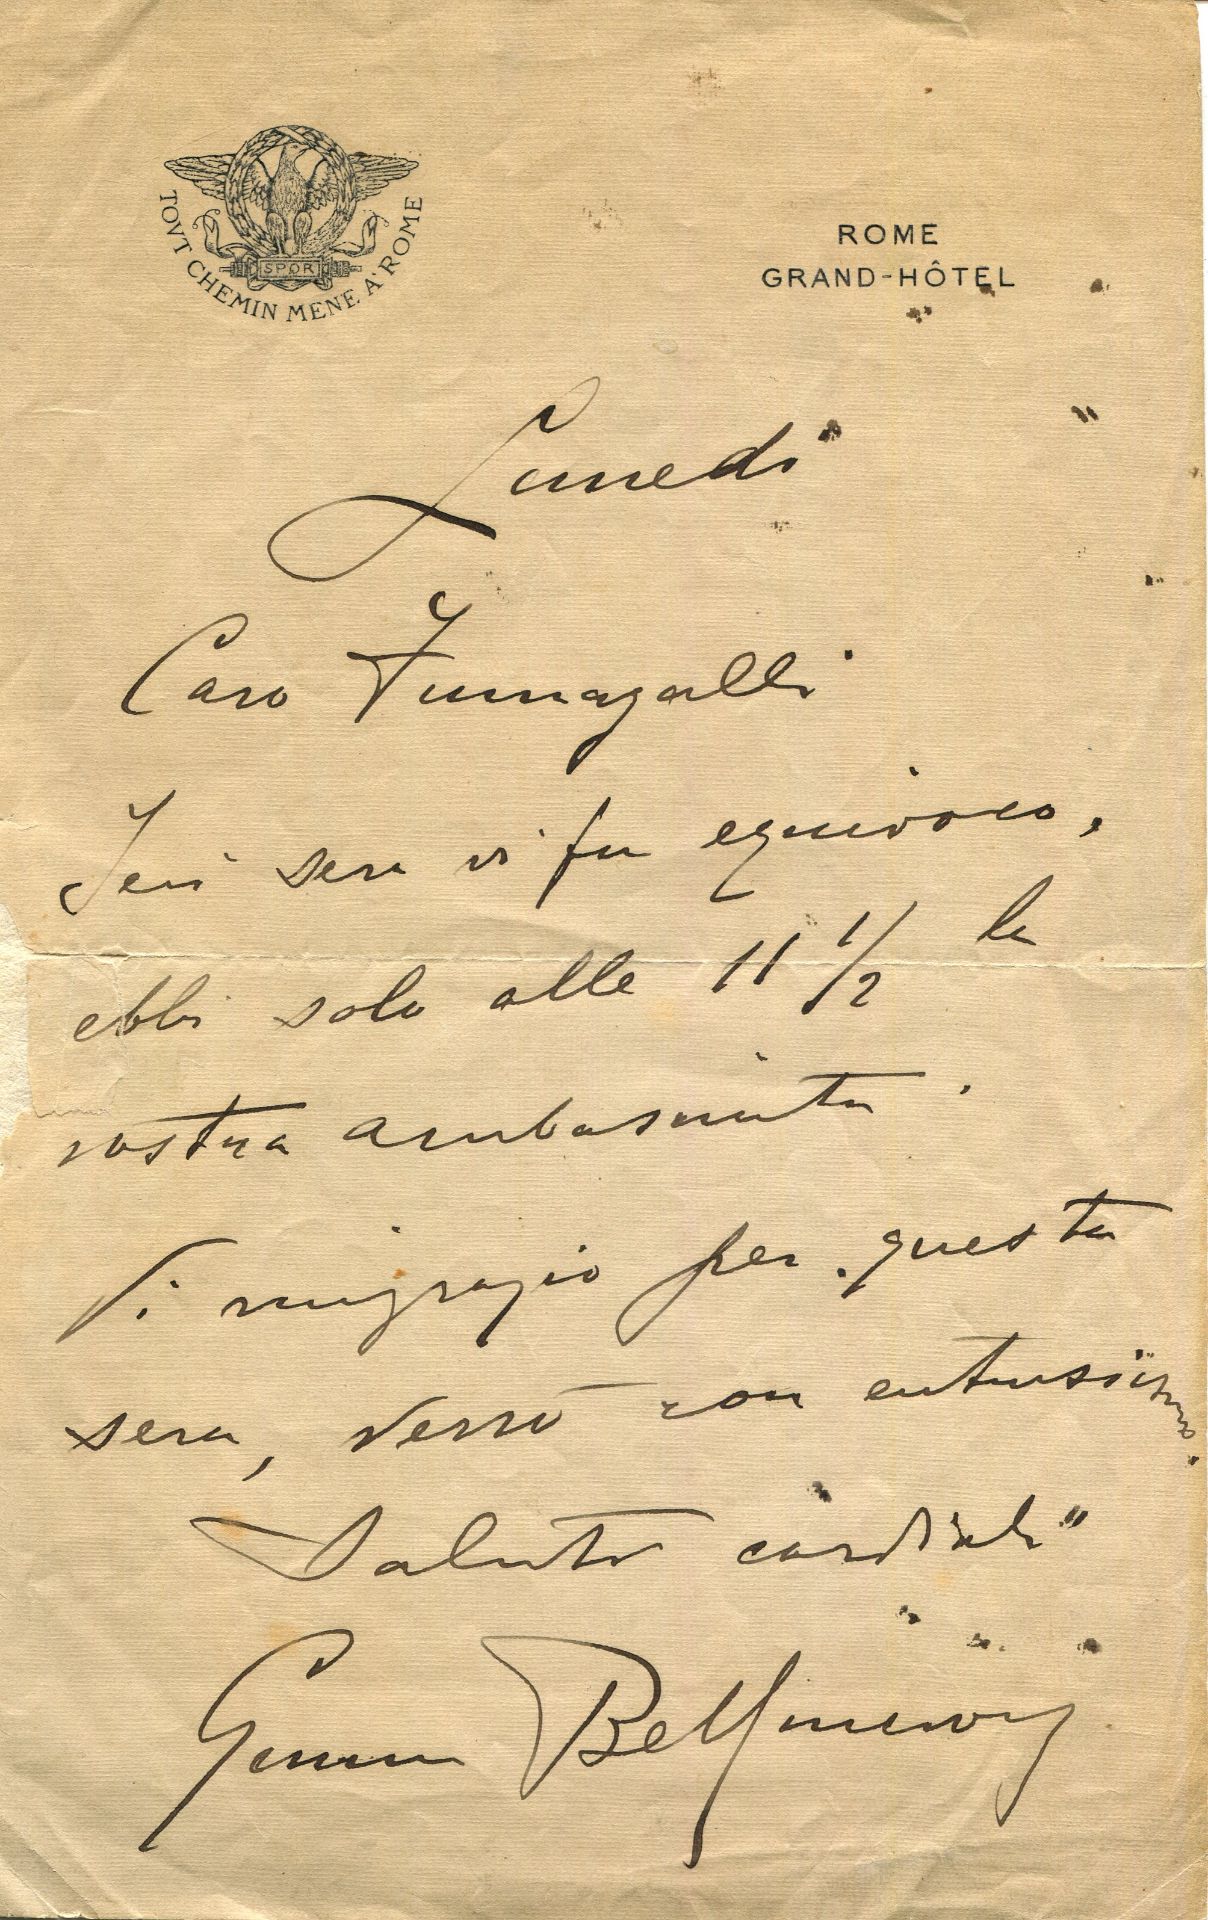 TOVT CHEMIN MENE A ROME
SPQR
ROME
GRAND-HÔTEL
Lunedi
Caro Fumagalli
Ieri sera vi fu equivoco,
ebbi solo alle 11 1/2 la
vostra ambasciata.
Vi ringrazio per questa
sera, verrò con entusiasmo.
Saluti cordiali
Gemma Bellincioni